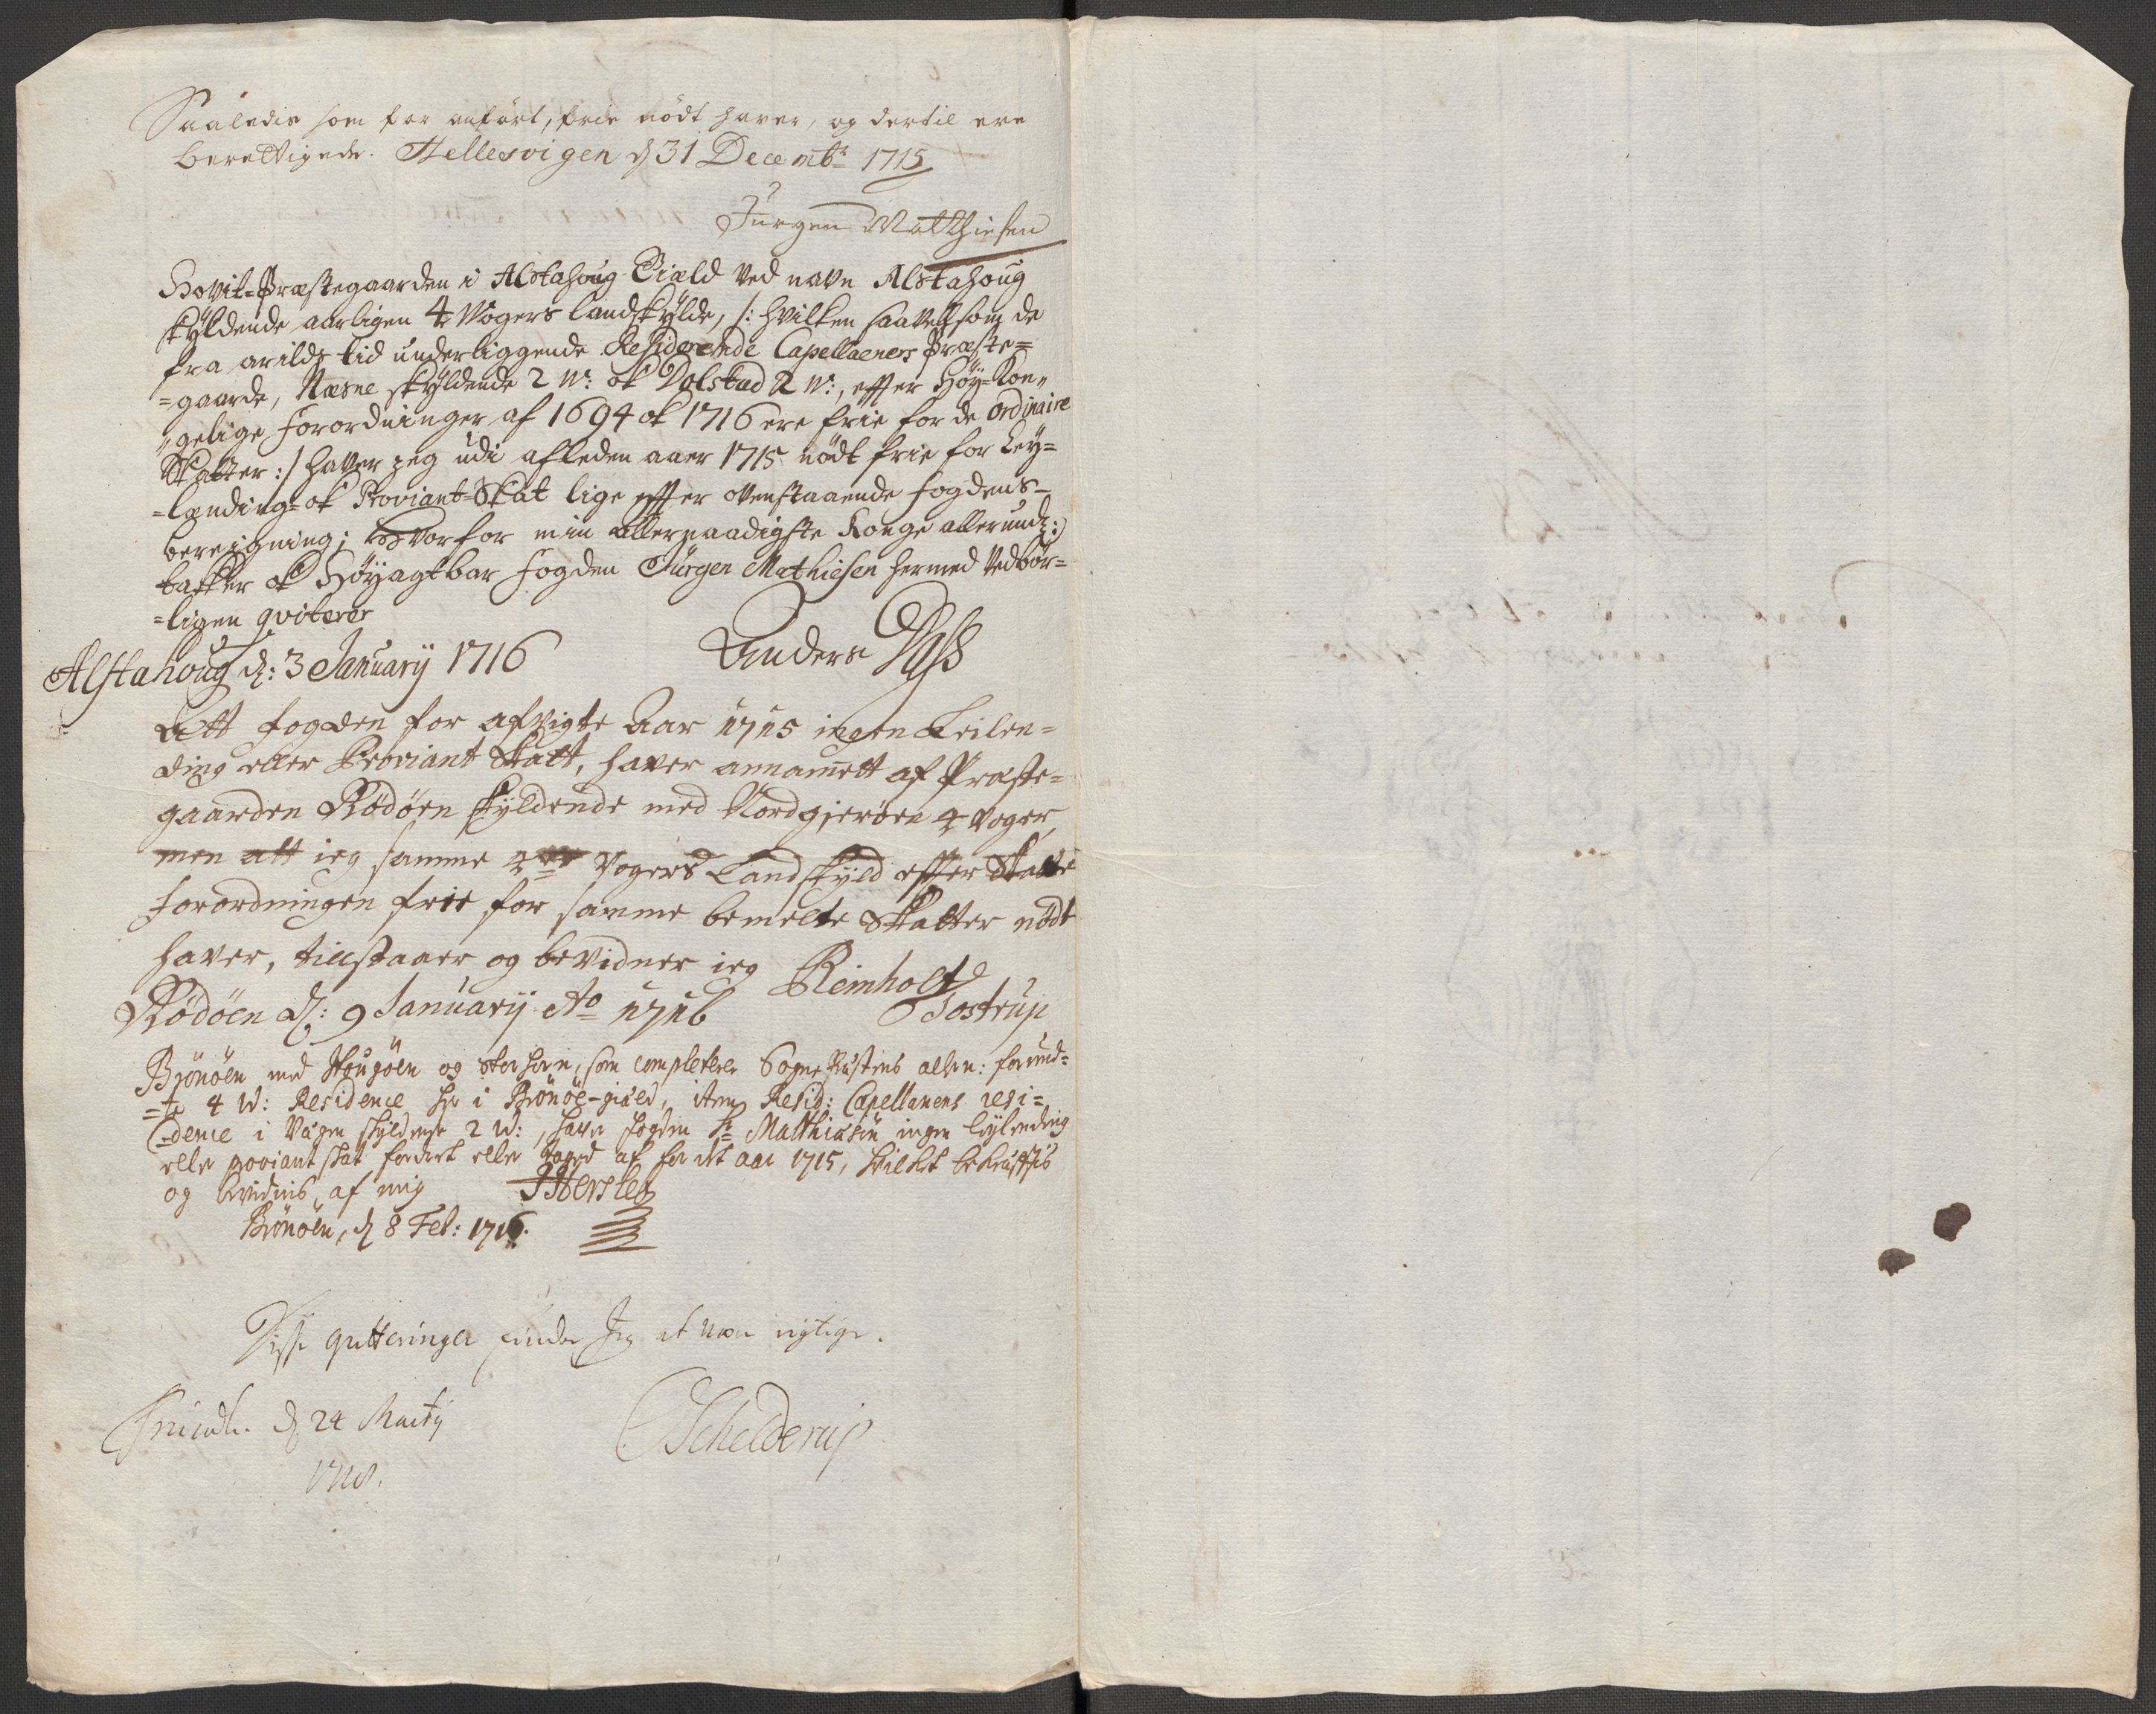 Saaledis som for anført, frie nødt haver, og dertil ere
berettigede. Hellesvigen d 31 Decembr 1715
Jürgen Matthiesen
Hovit-Præstegaarden i Alstahoug Giæld ved navn Alstahoug
skÿldende aarligen 4 Wogers landskÿlde, /: hvilken saavelsom de
fra arilds tid underliggende Residerende Capellaeners Præste=
=gaarde, Næsne skÿldende 2 W: ok Dolstad 2 W:, effter Høÿ-Kon„
„gelige Forordninger af 1694 ok 1716 ere frie for de Ordinaire
Skatter :/ haver jeg udi afleden aaer 1715 nödt frie for Leÿ=
=lænding- ok Proviant-Skat lige effter ovenstaaende Fogdens-
bereigning; hvorfor min allernaadigste Konge allerund:
takker ok Høÿagtbar Fogden Jürgen Mathiesen hermed Vedbør=
=ligen qviterer
Alstahoug d: 3 Januarÿ 1716 Anders Dass
Att fogden for afvigte Aar 1715 ingen Leilen=
ding eller Proviant Skatt, haver annamett af Præste=
gaarden Rødøen skÿldende med Nordgierøen 4 Voger,
men att ieg samme 4re Vogers Landskÿld effter Skatte
forordningen frie for samme bemelte Skatter nødt
haver, tillstaaer og bevidner ieg Reinholt
Rødøen d: 9 Januarij Ao 1716 Tostrup
Brønøen med Hougøen og Storhorn, som completerer Sogne Præstens allern: forund=
=te 4 W: Residence her i Brønøe-gield, item Resid: Capellanens resi=
=dence i Vågen skÿldende 2 W:, haver fogden Sr Matthiesen ingen leÿlending
eller proviant skat fordret eller taged af for det aar 1715, hvilket bekræftis
og bevidnis, af mig JHersleb
Brønøen, d 8 Feb: 1716.
Disse qvitteringer finder Jeg at være rigtige.
Trundh. d 24 Martÿ Schelderup
1718.